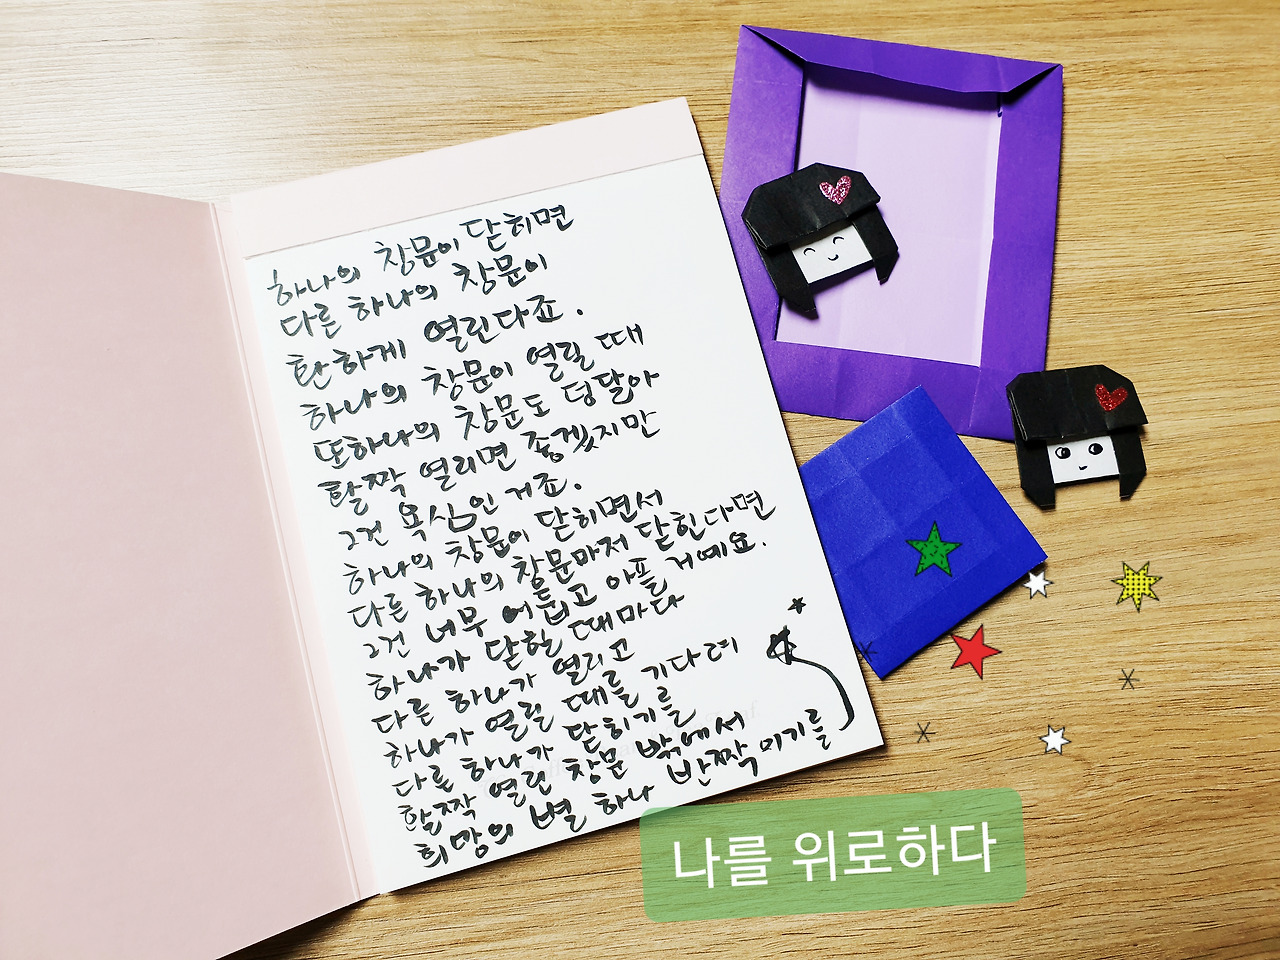 하나의 창문이 닫히면
다른 하나의 창문이
환하게 열린다죠.
하나의 창문이 열릴 때
또하나의 창문도 덩달아
활짝 열리면 좋겠지만
그건 욕심인 거죠.
하나의 창문이 닫히면서
다른 하나의 창문마저 닫힌다면
그건 너무 어둡고 아플 거예요.
하나가 닫힐 때마다
다른 하나가 열리고
하나가 열릴 때를 기다려
다른 하나가 닫히기를
활짝 열린 창문 밖에서
희망의 별 하나 반짝이기를
나를 위로하다